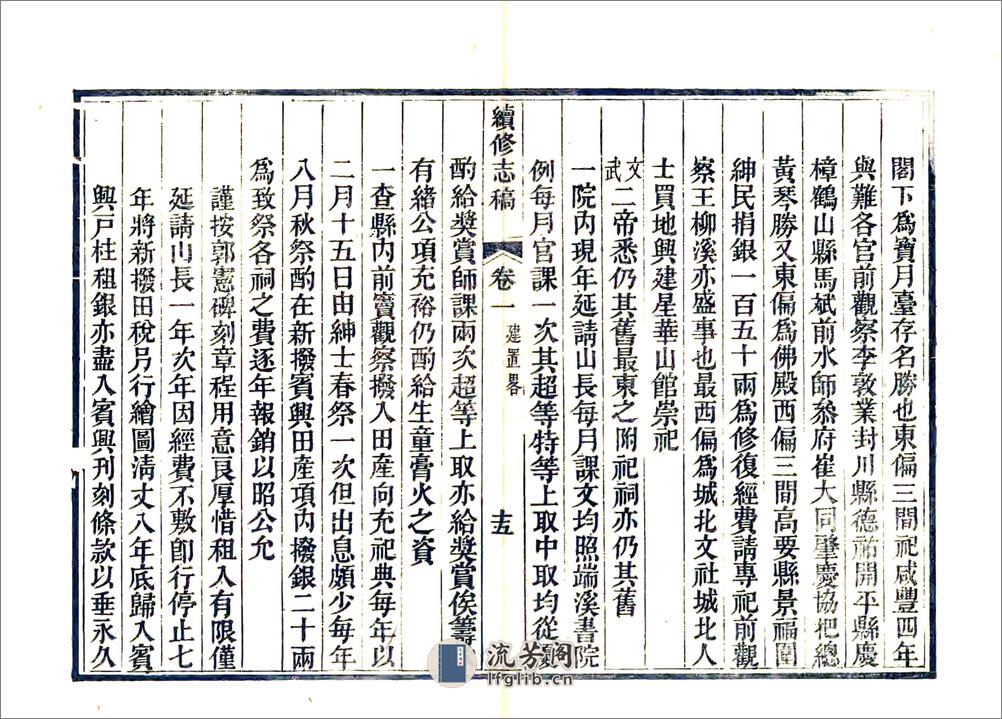 閣下爲寶月臺存名勝也東偏三間祀咸豐四年
與難各官前觀察李敦業封川縣德祐開平縣慶
樟鶴山縣馬斌前水師叅府崔大同肇慶協把總
黃琴勝又東偏爲佛殿西偏三間高要縣景福圍
紳民捐銀一百五十兩爲修復經費請專祀前觀
察王柳溪亦盛事也最西偏爲城北文社城北人
士買地興建星華山館崇祀
文武二帝悉仍其舊最東之附祀祠亦仍其舊
一院內現年延請山長每月課文均照端溪書院
例每月官課一次其超等特等上取中取均從
續修志稿 卷一 建置畧 十五
酌給獎賞師課兩次超等上取亦給獎賞俟籌
有緒公項充裕仍酌給生童膏火之資
一查縣內前竇觀察撥入田產向充祀典每年以
二月十五日由紳士春祭一次但出息頗少每年
八月秋祭酌在新撥賓興田產項內撥銀二十兩
爲致祭各祠之費逐年報銷以昭公允
謹按郭憲碑刻章程用意良厚惜租入有限僅
延請山長一年次年因經費不敷卽行停止七
年將新撥田稅另行繪圖淸丈八年底歸入賓
興戸柱租銀亦盡入賓興刊刻條款以垂永久
流芳閣
lfglib.cn